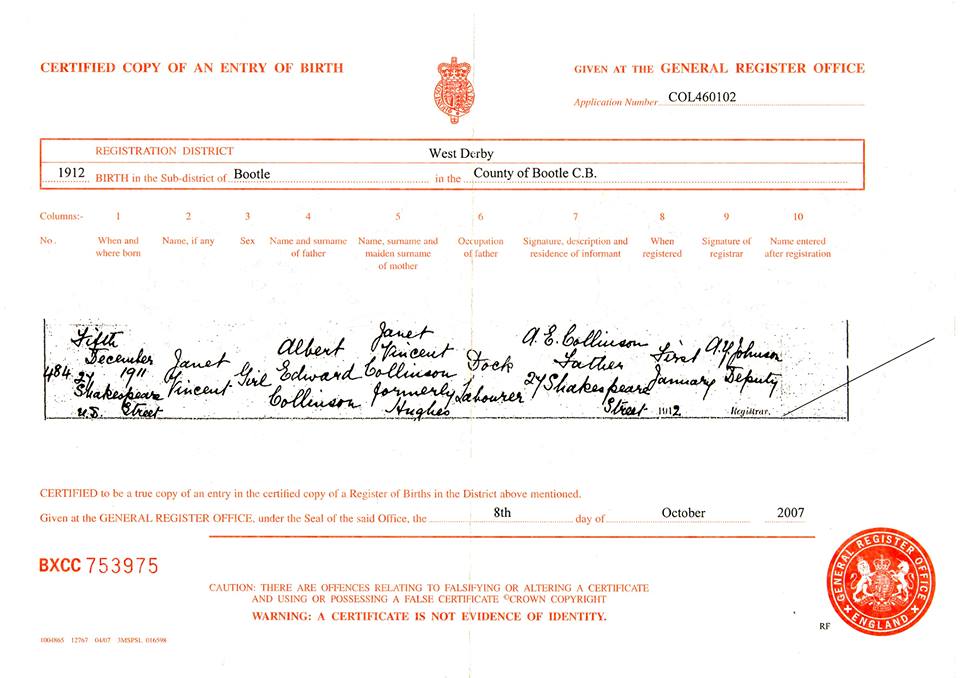 CERTIFIED COPY OF AN ENTRY OF BIRTH
GIVEN AT THE GENERAL REGISTER OFFICE
Application Number COL460102
REGISTRATION DISTRICT West Derby
1912 BIRTH in the Sub-district of Bootle in the County of Bootle C.B.
Columns:- 1 2 3 4 5 6 7 8 9 10
No. When and where born Name, if any Sex Name and surname of father Name, surname and maiden surname of mother Occupation of father Signature, description and residence of informant When registered Signature of registrar Name entered after registration
484
Fifth
December
1911
27
Shakespeare
Street
U.D.
Janet
Vincent
Girl
Albert
Edward
Collinson
Janet
Vincent
Collinson
formerly
Hughes
Dock
Labourer
A. E. Collinson
Father
27 Shakespeare
Street
First
January
1912
Johnson
Deputy
Registrar.
CERTIFIED to be a true copy of an entry in the certified copy of a Register of Births in the District above mentioned.
Given at the GENERAL REGISTER OFFICE, under the Seal of the said Office, the 8th day of October 2007
BXCC 753975
CAUTION: THERE ARE OFFENCES RELATING TO FALSIFYING OR ALTERING A CERTIFICATE
AND USING OR POSSESSING A FALSE CERTIFICATE ©CROWN COPYRIGHT
WARNING: A CERTIFICATE IS NOT EVIDENCE OF IDENTITY.
GENERAL REGISTER OFFICE
ENGLAND
RF
1004865 12767 04/07 3MSPSL 016598